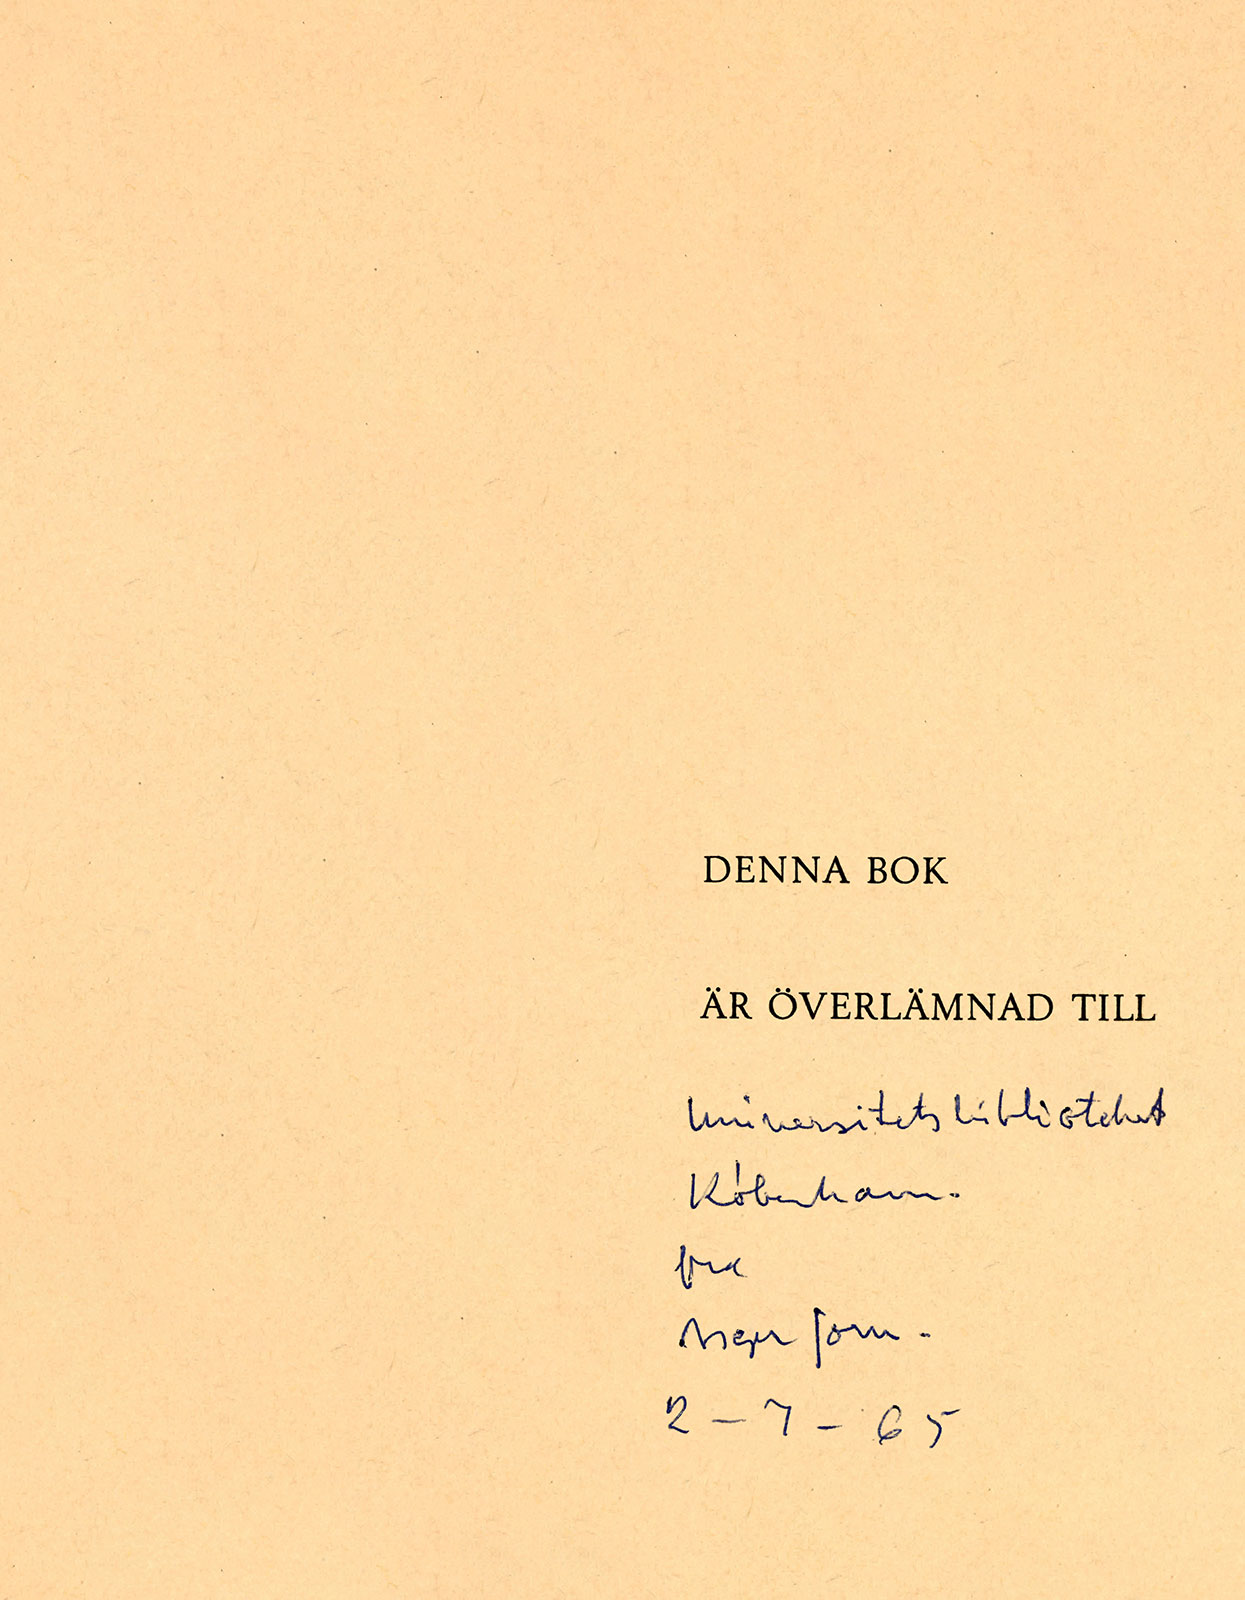 DENNA BOK
ÄR ÖVERLÄMNAD TILL
Universitetsbiblioteket
København.
fra
Asger Jorn.
2 – 7 – 65